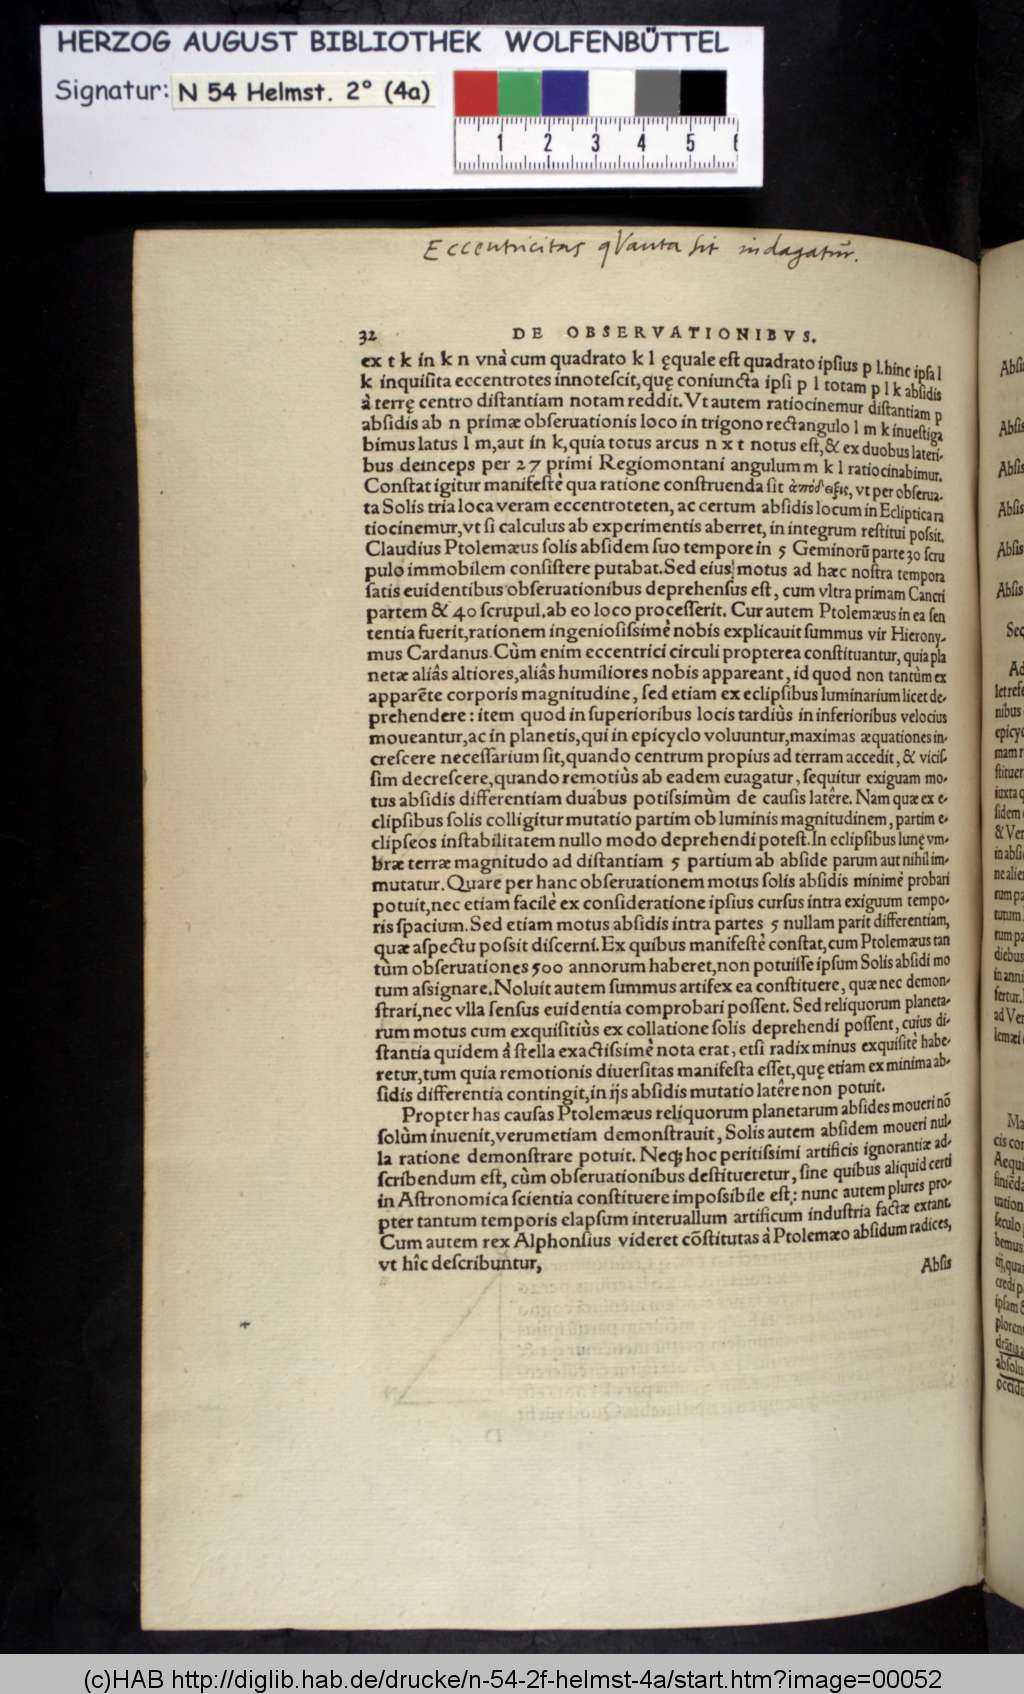 HERZOG AUGUST BIBLIOTHEK WOLFENBÜTTEL
Signatur: N 54 Helmst. 2° (4a)
1 2 3 4 5 6
Eccentricitas qVanta sit indagatur.
32 DE OBSERVATIONIBVS.
ex t k in k n vnà cum quadrato k l ęquale est quadrato ipsius p l. hinc ipsa l
k inquisita eccentrotes innotescit, quę coniuncta ipsi p l totam p l k absidis
à terrę centro distantiam notam reddit. Vt autem ratiocinemur distantiam p
absidis ab n primæ obseruationis loco in trigono rectangulo l m k inuestiga
bimus latus l m, aut in k, quia totus arcus n x t notus est, & ex duobus lateri-
bus deinceps per 27 primi Regiomontani angulum m k l ratiocinabimur.
Constat igitur manifestè qua ratione construenda sit ἀπόδειξις, vt per obserua-
ta Solis tria loca veram eccentroteten, ac certum absidis locum in Ecliptica ra
tiocinemur, vt si calculus ab experimentis aberret, in integrum restitui possit.
Claudius Ptolemæus solis absidem suo tempore in 5 Geminorũ parte 30 scru
pulo immobilem consistere putabat. Sed eius motus ad hæc nostra tempora
satis euidentibus obseruationibus deprehensus est, cum vltra primam Cancri
partem & 40 scrupul. ab eo loco processerit. Cur autem Ptolemæus in ea sen
tentia fuerit, rationem ingeniosissimè nobis explicauit summus vir Hierony-
mus Cardanus. Cùm enim eccentrici circuli propterea constituantur, quia pla
netæ aliâs altiores, aliâs humiliores nobis appareant, id quod non tantùm ex
apparẽte corporis magnitudine, sed etiam ex eclipsibus luminarium licet de-
prehendere: item quod in superioribus locis tardiùs in inferioribus velocius
moueantur, ac in planetis, qui in epicyclo voluuntur, maximas æquationes in-
crescere necessarium sit, quando centrum propius ad terram accedit, & vicis-
sim decrescere, quando remotiùs ab eadem euagatur, sequitur exiguam mo-
tus absidis differentiam duabus potissimùm de causis latêre. Nam quæ ex e-
clipsibus solis colligitur mutatio partim ob luminis magnitudinem, partim e-
clipseos instabilitatem nullo modo deprehendi potest. In eclipsibus lunę vm-
bræ terræ magnitudo ad distantiam 5 partium ab abside parum aut nihil im-
mutatur. Quare per hanc obseruationem motus solis absidis minimè probari
potuit, nec etiam facilè ex consideratione ipsius cursus intra exiguum tempo-
ris spacium. Sed etiam motus absidis intra partes 5 nullam parit differentiam,
quæ aspectu possit discerni. Ex quibus manifestè constat, cum Ptolemæus tan
tùm obseruationes 500 annorum haberet, non potuisse ipsum Solis absidi mo
tum assignare. Noluit autem summus artifex ea constituere, quæ nec demon-
strari, nec vlla sensus euidentia comprobari possent. Sed reliquorum planeta-
rum motus cum exquisitiùs ex collatione solis deprehendi possent, cuius di-
stantia quidem à stella exactissimè nota erat, etsi radix minus exquisitè habe-
retur, tum quia remotionis diuersitas manifesta esset, quę etiam ex minima ab-
sidis differentia contingit, in ijs absidis mutatio latêre non potuit.
Propter has causas Ptolemæus reliquorum planetarum absides moueri nõ
solùm inuenit, verumetiam demonstrauit, Solis autem absidem moueri nul-
la ratione demonstrare potuit. Neq; hoc peritissimi artificis ignorantiæ ad-
scribendum est, cùm obseruationibus destitueretur, sine quibus aliquid certi
in Astronomica scientia constituere impossibile est: nunc autem plures pro-
pter tantum temporis elapsum interuallum artificum industria factæ extant.
Cum autem rex Alphonsius videret cõstitutas à Ptolemæo absidum radices,
vt hîc describuntur,
Absis
(c)HAB http://diglib.hab.de/drucke/n-54-2f-helmst-4a/start.htm?image=00052